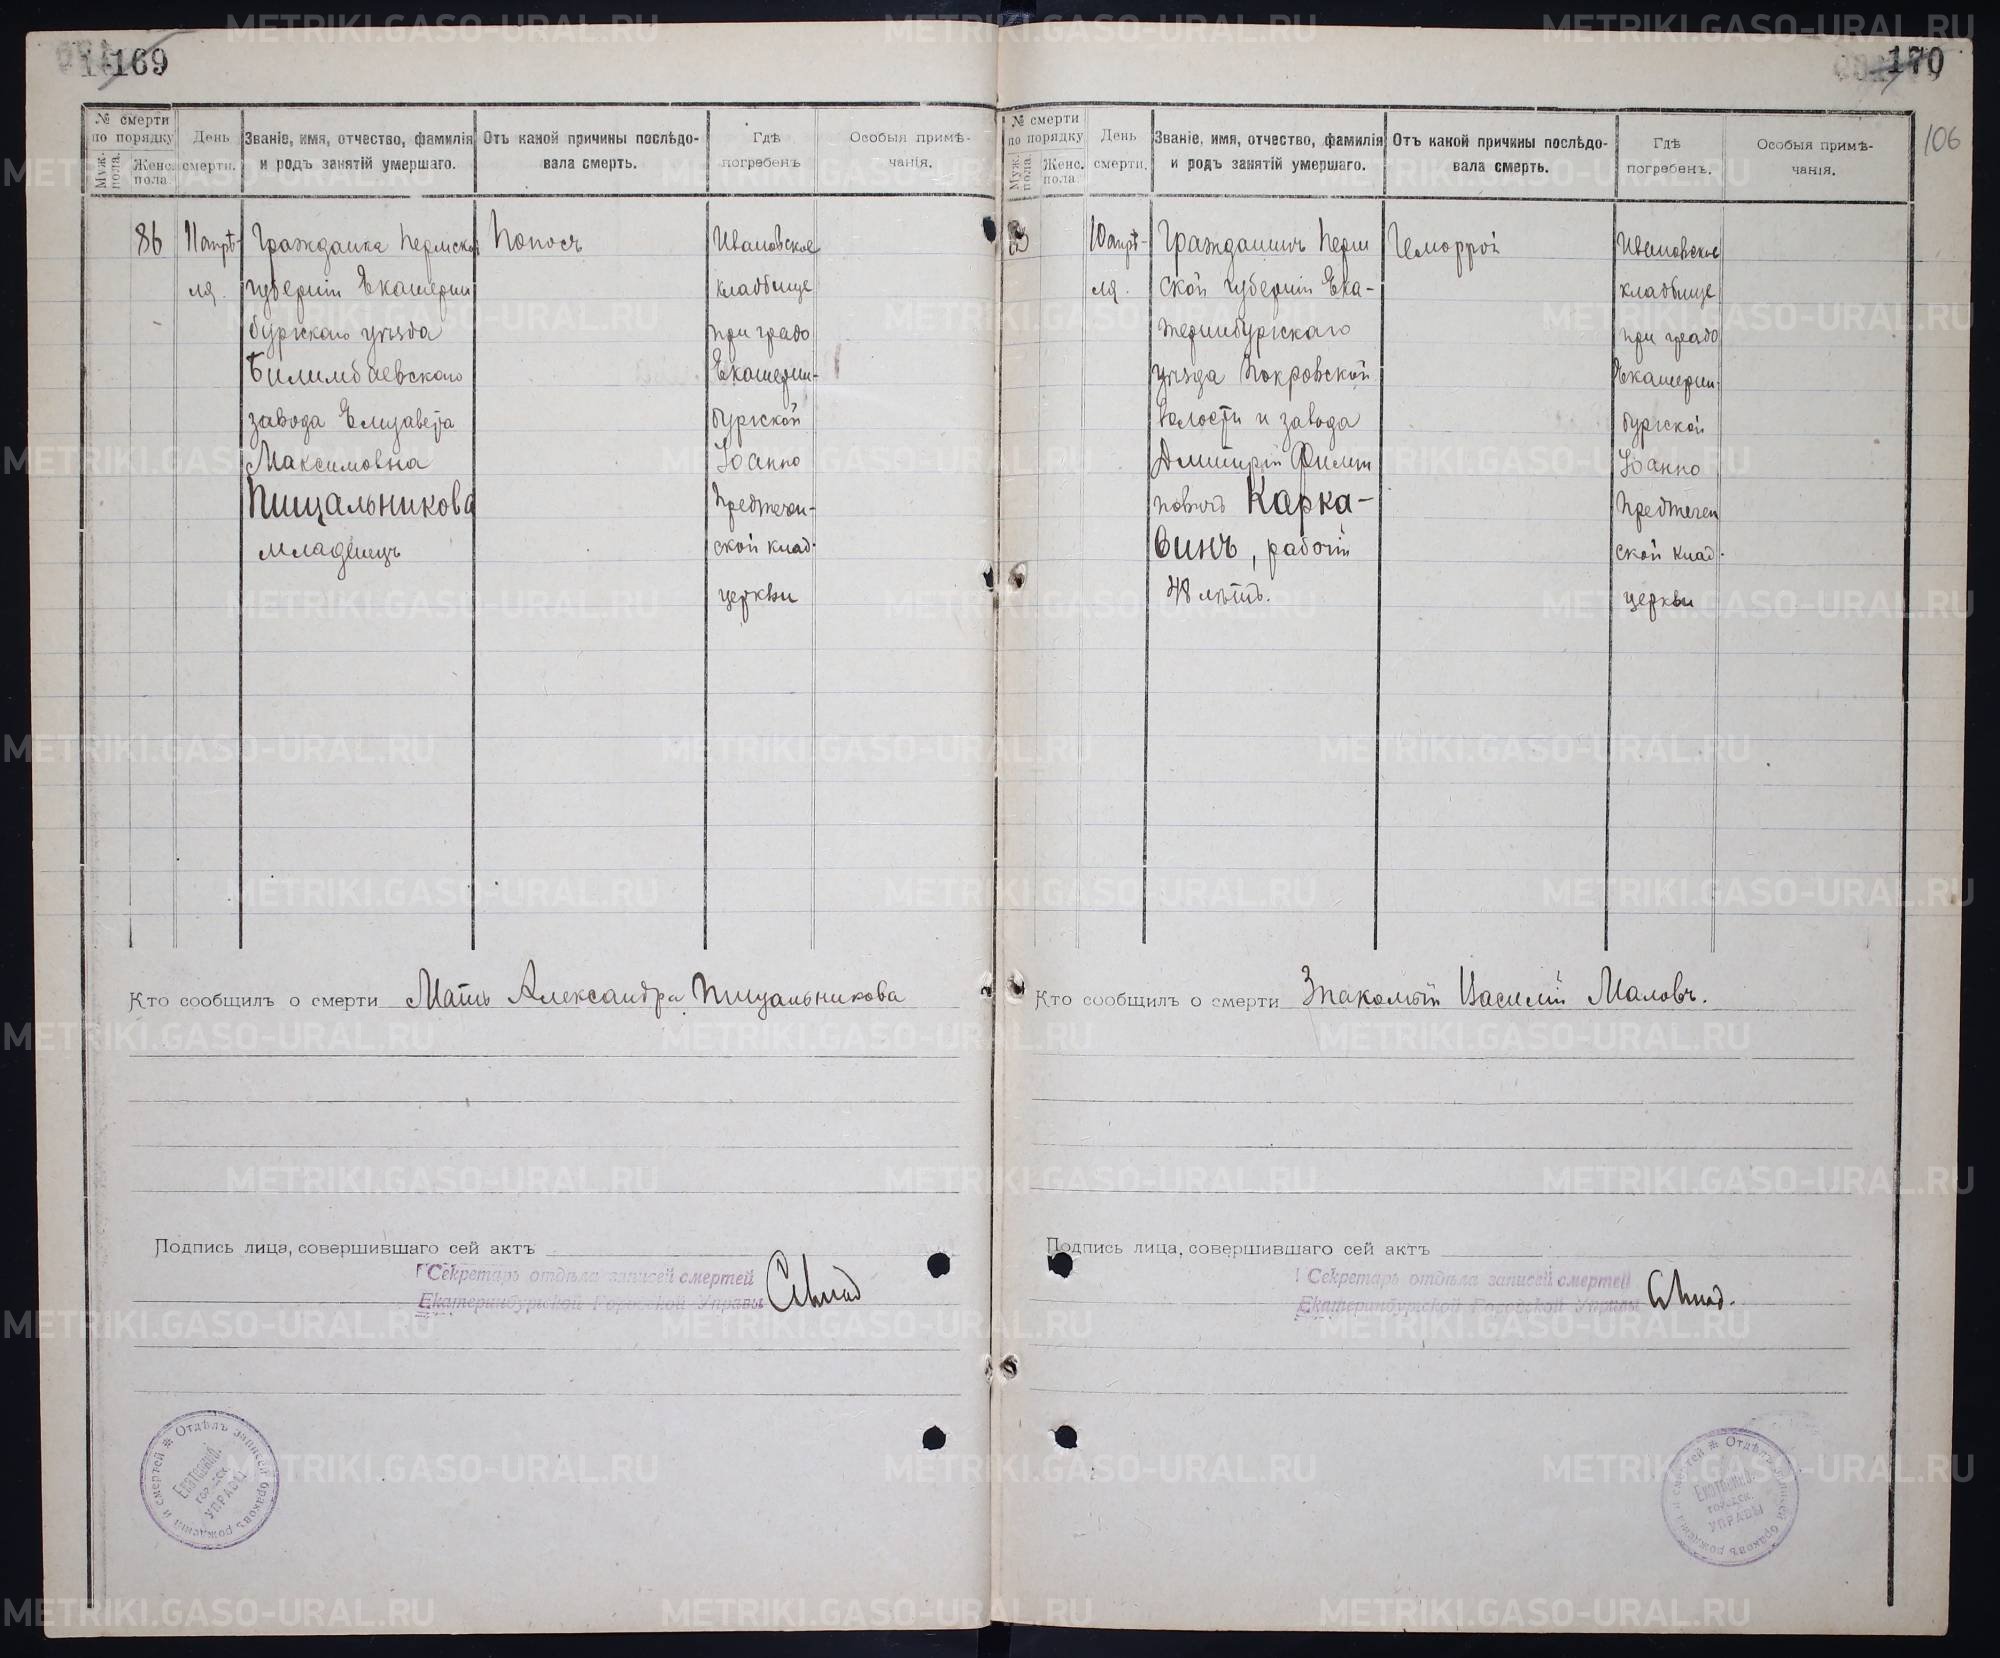 169
№ смерти по порядку
Муж. пола.
Женс. пола.
День смерти.
Званіе, имя, отчество, фамилія и родъ занятій умершаго.
Отъ какой причины послѣдовала смерть.
Гдѣ погребенъ
Особыя примѣчанія.
86
11 апрѣ-
ля.
Гражданка Пермской
губерніи Екатерин
бургскаго уѣзда
Билимбаевскаго
завода Елизавета
Максимовна
Пищальникова
младенецъ
Поносъ
Ивановское
кладбище
при градо
Екатерин-
бургской
Іоанно
Предтечен-
ской клад.
церкви
Кто сообщилъ о смерти Мать Александра Пищальникова
Подпись лица, совершившаго сей актъ
Секретарь отдѣла записей смертей
Екатеринбургской Городской Управы
Отдѣлъ записей браковъ рожденія и смертей
Екатеринб.
городск.
УПРАВЫ
170
106
№ смерти по порядку
Муж. пола.
Женс. пола.
День смерти.
Званіе, имя, отчество, фамилія и родъ занятій умершаго.
Отъ какой причины послѣдовала смерть.
Гдѣ погребенъ.
Особыя примѣчанія.
10 апрѣ-
ля.
Гражданинъ Перм
ской губерніи Ека-
теринбургскаго
уѣзда Покровской
волости и завода
Дмитрій Филип
повичъ Карка-
винъ, рабочій
48 лѣтъ.
Геморрой
Ивановское
кладбище
при градо
Екатерин-
бургской
Іоанно
Предтечен
ской клад.
церкви
Кто сообщилъ о смерти Знакомый Василій Маловъ.
Подпись лица, совершившаго сей актъ
Секретарь отдѣла записей смертей
Екатеринбургской Городской Управы
Отдѣлъ записей браковъ рожденія и смертей
Екатеринб.
городск.
УПРАВЫ
METRIKI.GASO-URAL.RU